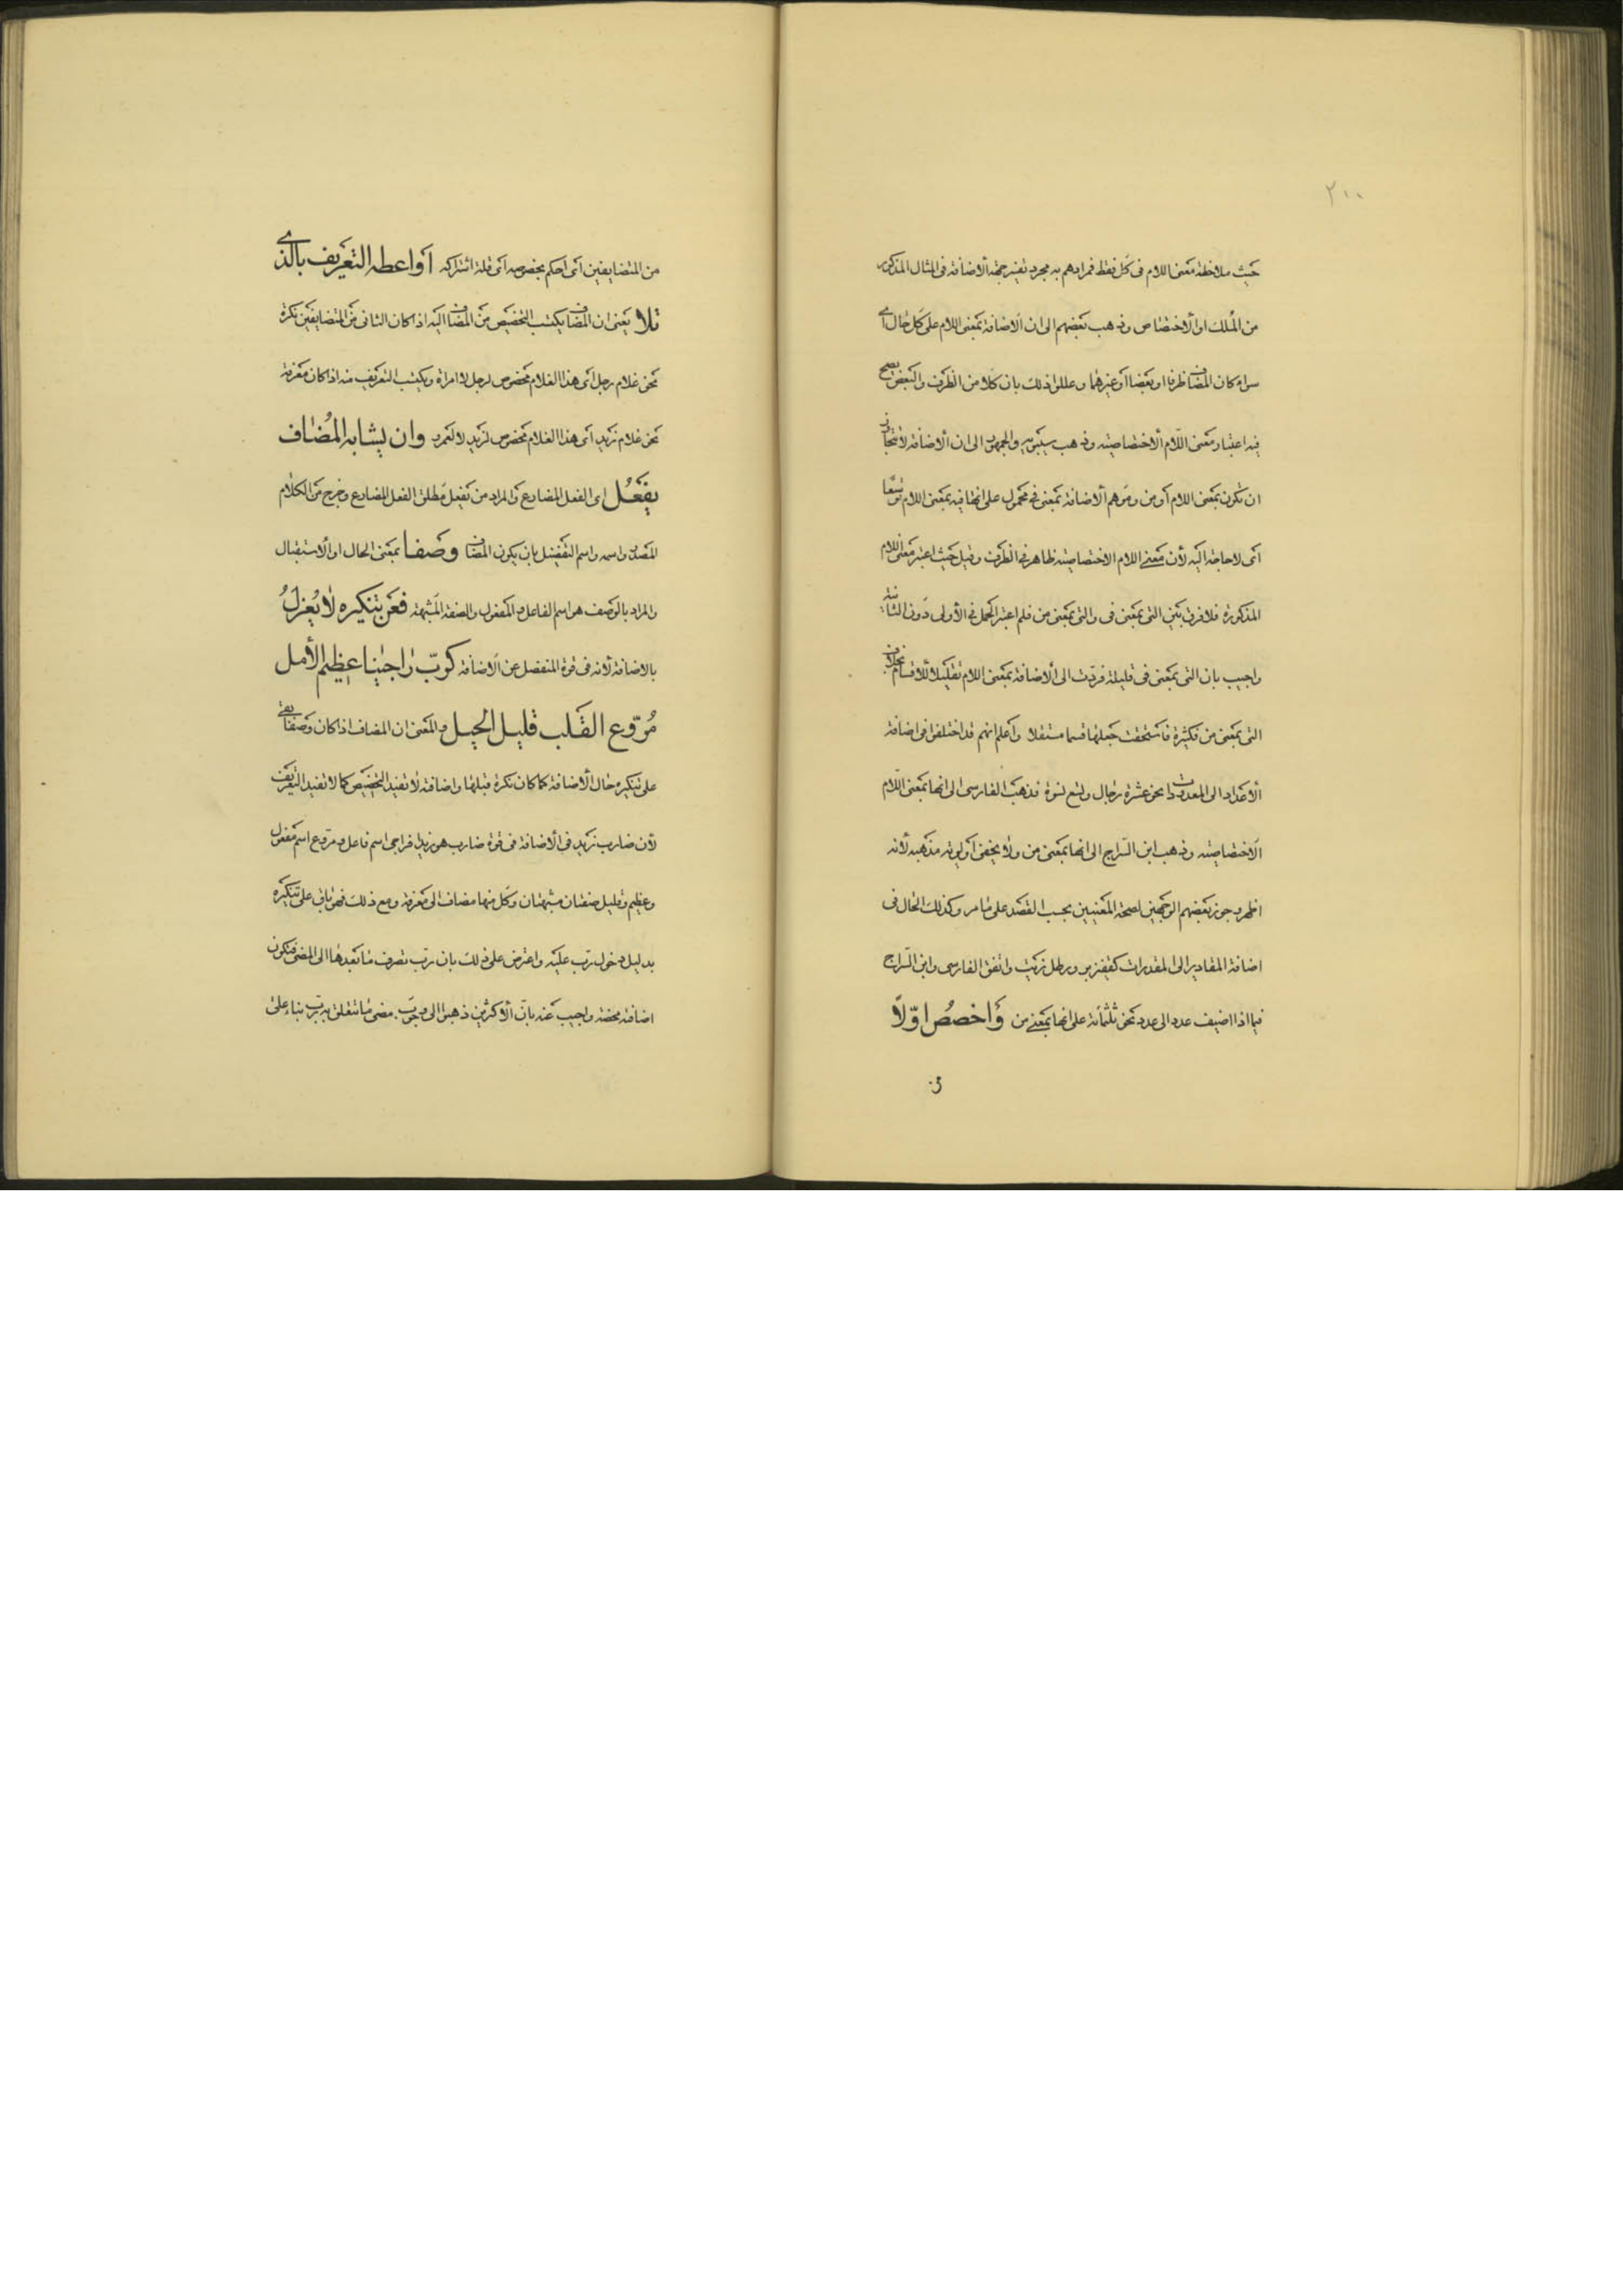 ٢٠٠
حيث ملاحظة معنى اللام فى كل فقط فمرادهم به مجرد تفسير جهة الاضافة فى المثال المذكور
من الملك او الاختصاص وذهب بعضهم الى ان الاضافة بمعنى اللام على كل حال اى
سواء كان المضاف ظرفا او بعضا او غيرهما وعللوا ذلك بان كلا من الظرف والبعض يصح
فيه اعتبار معنى اللام الاختصاصيته وذهب سيبويه والجمهور الى ان الاضافة لا تتجاوز
ان تكون بمعنى اللام او من وموهم الاضافة بمعنى فى محمول على انها فيه بمعنى اللام توسعا
اى لا حاجة اليه لأن معنى اللام الاختصاصيته ظاهر فى الظرف وقيل حيث اعتبر معنى اللام
المذكورة فلا فرق بين التى بمعنى فى والتى بمعنى من فلم اعتبر الحمل فى الأولى دون الثانية
واجيب بان التى بمعنى فى قليلة فردت الى الاضافة بمعنى اللام تقليلا للاقسام بخلاف
التى بمعنى من فكثيرة فاستحقت جعلها قسما مستقلا واعلم انهم قد اختلفوا فى اضافة
الأعداد الى المعدودات نحو عشرة رجال وتسع نسوة فذهب الفارسى الى انها بمعنى اللام
الاختصاصيته وذهب ابن السراج الى انها بمعنى من ولا يخفى اولوية مذهبه لأنه
اظهر وجوز بعضهم الوجهين لصحة المعنيين بحسب القصد على ما مر وكذلك الحال فى
اضافة المقادير الى المقدرات كقفيز بر ورطل زيت واتفق الفارسى وابن السراج
فيما اذا اضيف عدد الى عدد نحو ثلثمائة على انها بمعنى من وَاخصُص اوّلاً
من المتضايفين اى احكم بخصوصه اى قلة اشتراكه أواعطه التعريف بالذى
تلا يعنى ان المضاف يكتسب التخصيص من المضاف اليه اذا كان الثانى من المتضايفين نكرة
نحو غلام رجل اى هذا الغلام مخصوص لرجل لا امراة ويكتسب التعريف منه اذا كان معرفة
نحو غلام زيد اى هذا الغلام مخصوص لزيد لا لعمرو وان يشابه المُضاف
يفعَلُ اى الفعل المضارع والمراد من يفعل مطلق الفعل المضارع وخرج من الكلام
المصدر واسمه واسم التفضيل بان يكون المضاف وصفا بمعنى الحال او الاستقبال
والمراد بالوصف هو اسم الفاعل والمفعول والصفة المشبهة فعن تنكيره لا يُعزلُ
بالاضافة لأنه فى قوة المنفصل عن الاضافة كربّ راجينا عظيم الأمل
مُروّع القلب قليل الحيل والمعنى ان المضاف اذا كان وصفا بقى
على تنكيره حال الاضافة كما كان نكرة قبلها واضافته لا تفيد التخصيص كما لا تفيد التعريف
لأن ضارب زيد فى الاضافة فى قوة ضارب هو زيدا فراجى اسم فاعل ومروع اسم مفعول
وعظيم وقليل صفتان مشبهتان وكل منها مضاف الى معرفة ومع ذلك فهو باق على تنكيره
بدليل دخول رب عليه واعترض على ذلك بان رب تصرف ما بعدها الى المضى فتكون
اضافته محضة واجيب عنه بان الأكثرين ذهبوا الى وجوب مضى ما تتعلق به رب بناء على